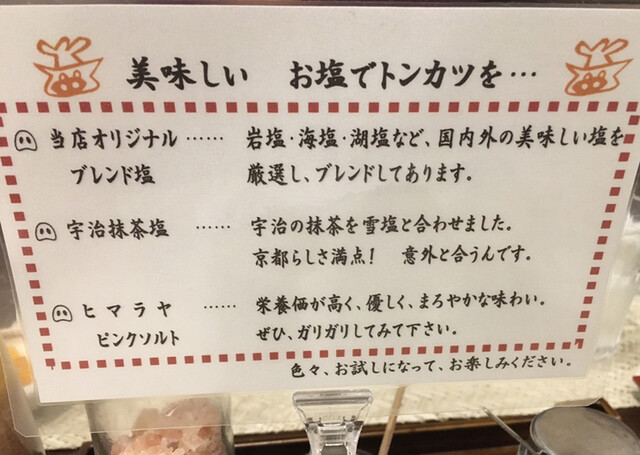 美味しい お塩でトンカツを…
当店オリジナル …… 岩塩・海塩・湖塩など、国内外の美味しい塩を
ブレンド塩 厳選し、ブレンドしてあります。
宇治抹茶塩 …… 宇治の抹茶を雪塩と合わせました。
京都らしさ満点! 意外と合うんです。
ヒマラヤ …… 栄養価が高く、優しく、まろやかな味わい。
ピンクソルト ぜひ、ガリガリしてみて下さい。
色々、お試しになって、お楽しみください。